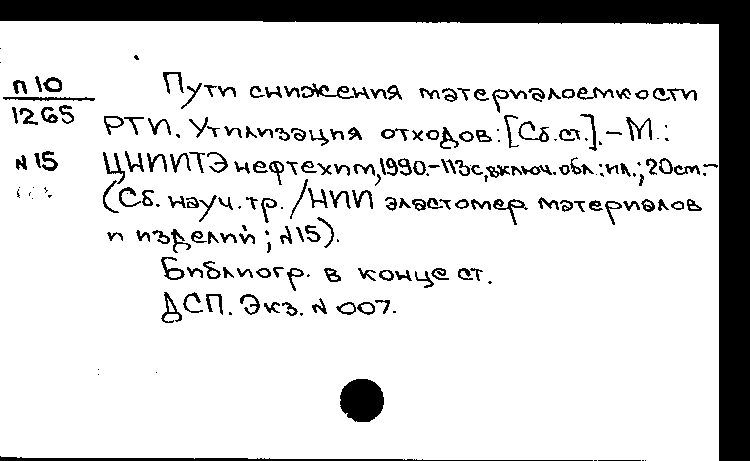 П 10
1265
N 15
Пути снижения материалоемкости
РТИ. Утилизация отходов: [Сб.ст.].-М.:
ЦНИИТЭнефтехим, 1990.-113с, включ. обл.: ил.; 20см.-
(Сб. науч. тр. / НИИ эластомер. материалов
и изделий; N15).
Библиогр. в конце ст.
ДСП. Экз. N 007.